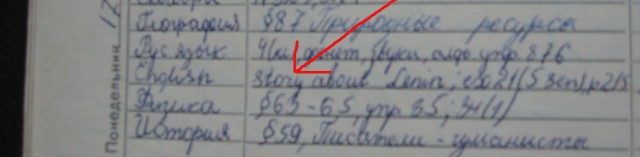 17
География §87 Природные ресурсы
Рус. язык фонет, звуки, упр 876
English story about Lenin; ex 21 (5 sen), p 215
Физика §63-65, упр 35; 34(1)
История §59, Писатели-гуманисты
Понедельник